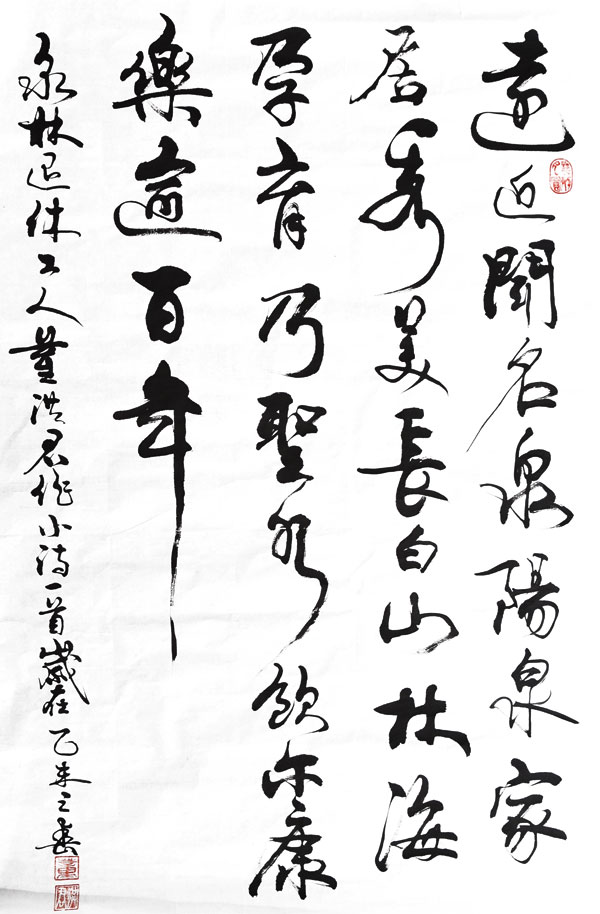 遠近聞名泉陽泉家
居秀美長白山林海
孕育乃聖水飲尔康
樂逾百年
泉林退休工人董洪君作小詩一首歲在乙未之春